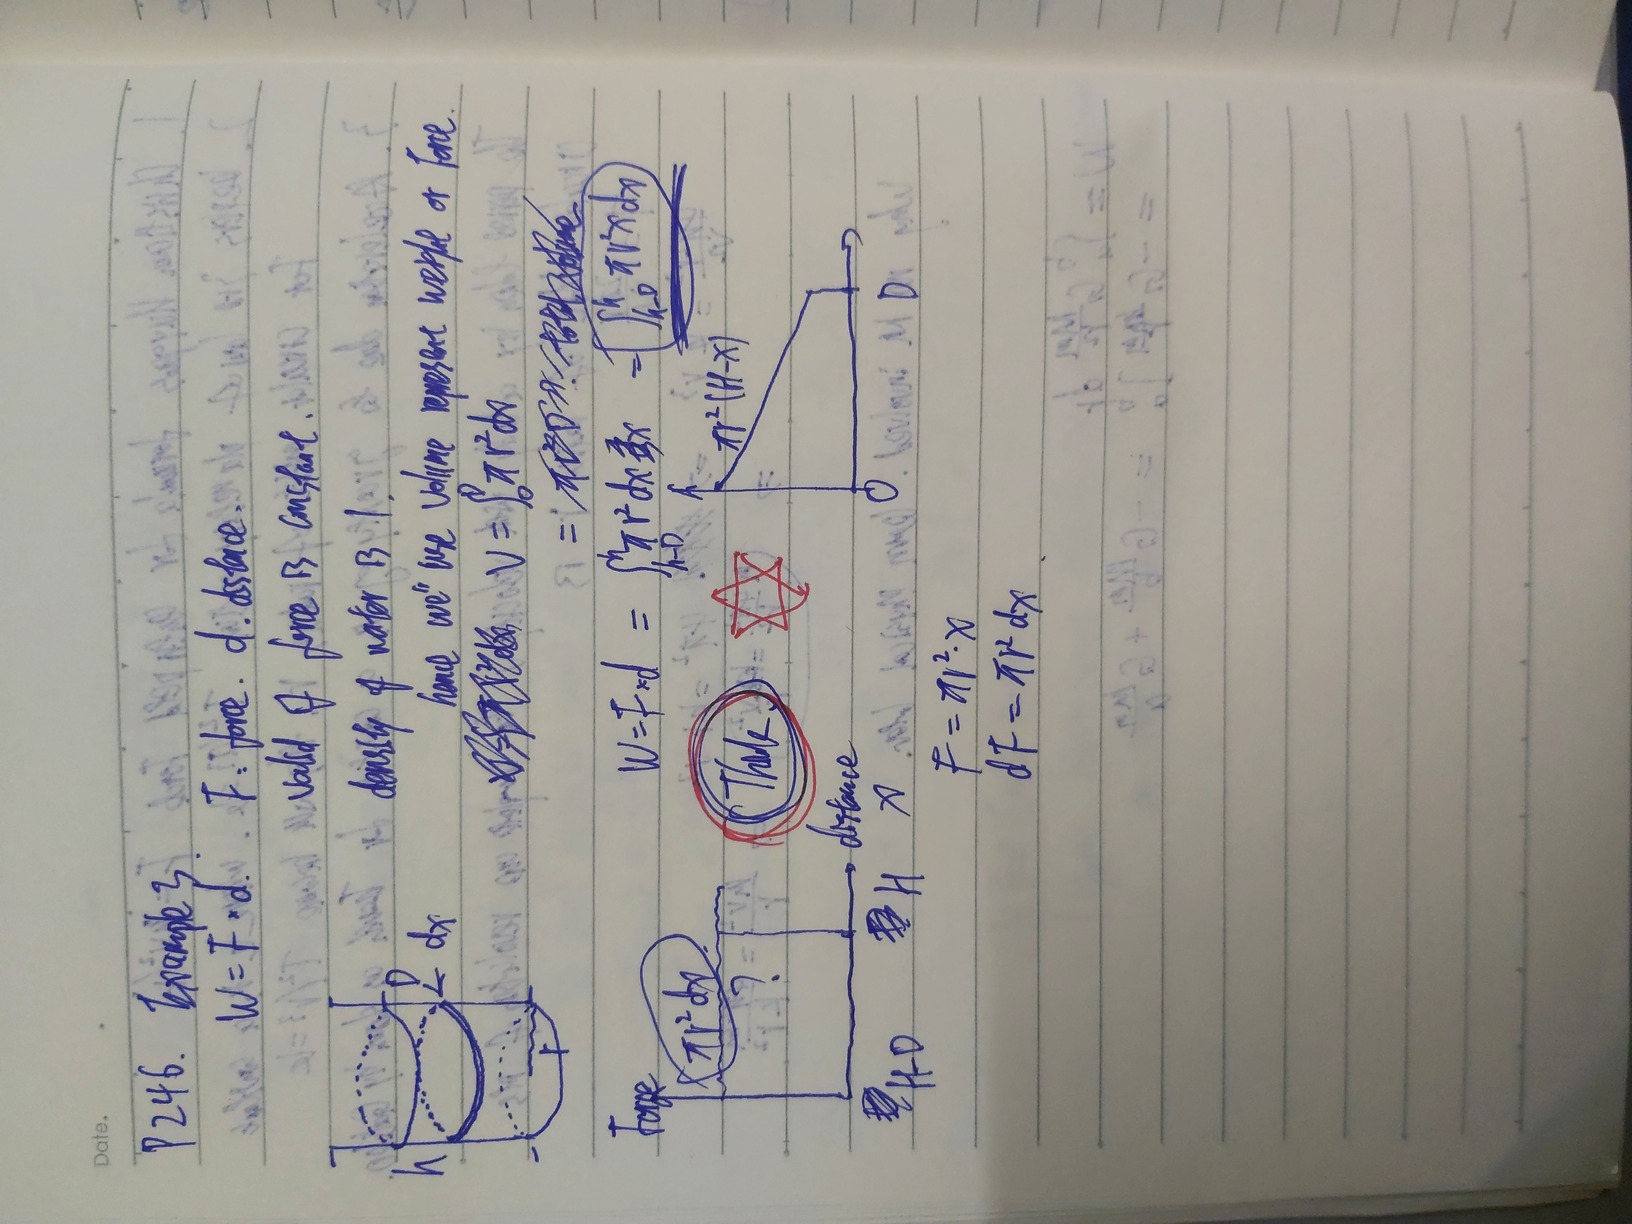 Date.
P246. Example 3
W = F · d. F: force. d. distance.
valid if force is constant.
density of water is 1.
hence we'' use volume represent weight or Force.
h D dx r
V = ∫₀ᴰ πr²dx
=
W = F·d = ∫ₕ₋Dʰ πr² dx x = ∫ₕ₋Dʰ πr²x dx
Force
πr²dx
?
Think
πr²(H-x)
distance
x
H-D H
O D
F = πr²·x
dF = πr² dx